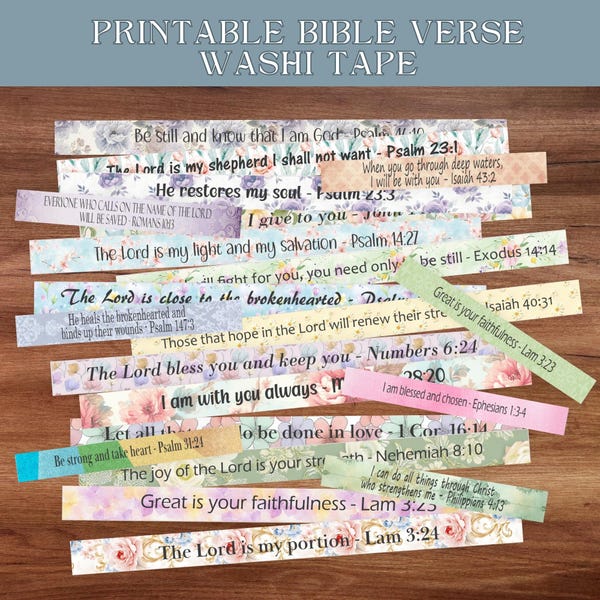 PRINTABLE BIBLE VERSE
WASHI TAPE
Be still and know that I am God - Psalm
The Lord is my shepherd I shall not want - Psalm 23:1
When you go through deep waters,
I will be with you - Isaiah 43:2
He restores my soul - Psalm 23:3
EVERYONE WHO CALLS ON THE NAME OF THE LORD
WILL BE SAVED - ROMANS 10:13
I give to you - John
The Lord is my light and my salvation - Psalm 14:27
will fight for you, you need only be still - Exodus 14:14
The Lord is close to the brokenhearted -
He heals the brokenhearted and
binds up their wounds - Psalm 147:3
Great is your faithfulness - Lam 3:23
Those that hope in the Lord will renew their Isaiah 40:31
The Lord bless you and keep you - Numbers 6:24
I am with you always - 28:20
I am blessed and chosen - Ephesians 1:3-4
Let all to be done in love - 1 Cor 16:14
Be strong and take heart - Psalm 31:24
The joy of the Lord is your - Nehemiah 8:10
I can do all things through Christ
who strengthens me - Philippians 4:13
Great is your faithfulness - Lam 3:23
The Lord is my portion - Lam 3:24